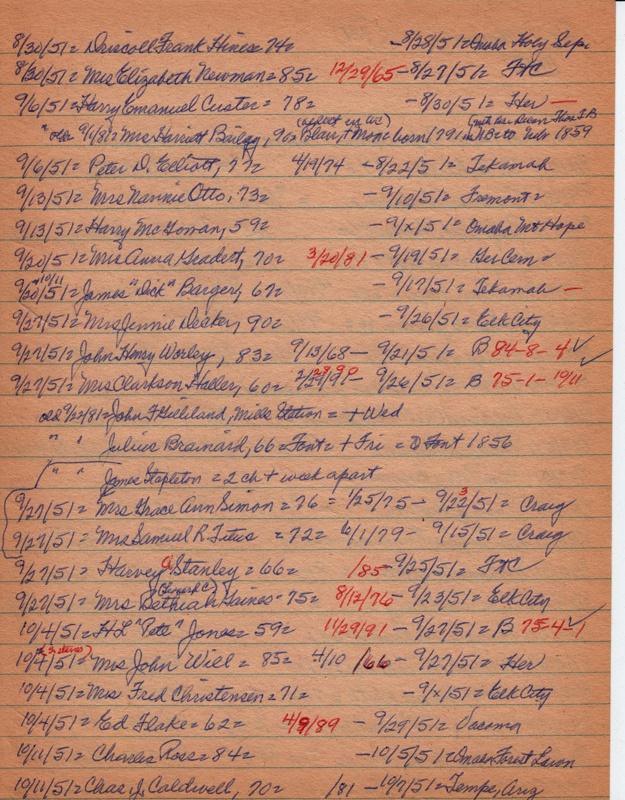 8/30/51= Driscoll Frank Hines= 74= -8/28/51= Omaha Holy Sep.
8/30/51= Mrs Elizabeth Newman= 85= 12/29/65-8/27/51= F/C
9/6/51= Harry Emanuel Custer= 78= -8/30/51= Her —
" old 9/1/81= Mrs Harriett Bailey, 96= Blair, + Mon= born 1791 to Neb 1859
9/6/51= Peter D. Elliott, 77= 4/19/74 -8/22/51= Tekamah
9/13/51= Mrs Nannie Otto, 73= -9/10/51= Fremont=
9/13/51= Harry McGowan, 59= -9/x/51= Omaha Mt Hope
9/20/51= Mrs Anna Gradert, 70= 3/20/81 - 9/19/51= Ger Cem=
10/11
9/20/51= James "Dick" Barger, 67= -9/17/51= Tekamah —
9/27/51= Mrs Jennie Decker, 90= -9/26/51= Elk City
9/27/51= John Henry Worley, 83= 9/13/68- 9/21/51= B 84-8-4 ✓
9/27/51= Mrs Clarkson Haller, 60= -9/26/51= B 75-1-10/11
old 9/22/81= John F Gilliland, Mills Station= + Wed
" " Julius Brainard, 66= Font= + Fri = D Font 1856
" " James Stapleton = 2 ch + week apart
9/27/51= Mrs Grace Ann Simon= 76 = 1/25/75- 9/22/51= Craig
9/27/51= Mrs Samuel R. Titus = 72= 6/1/79- 9/15/51= Craig
9/27/51= Harvey G Stanley= 66= /85- 9/25/51= F/C
9/27/51= Mrs Bethiah Gaines= 75= 8/12/76- 9/23/51= Elk City
10/4/51= H L "Pete" Jones= 59= 11/29/91 - 9/27/51= B 75-4-1 ✓
10/4/51= Mrs John Will = 85= 4/10 /66 - 9/27/51= Her
10/4/51= Mrs Fred Christensen= 71= -9/x/51= Elk City
10/4/51= Ed Flake= 62= 4/9/89 - 9/29/51= Vacoma
10/11/51= Charles Ross= 84= -10/5/51= Omaha Forest Lawn
10/11/51= Chas J. Caldwell, 70= /81 -10/7/51= Tempe, Ariz